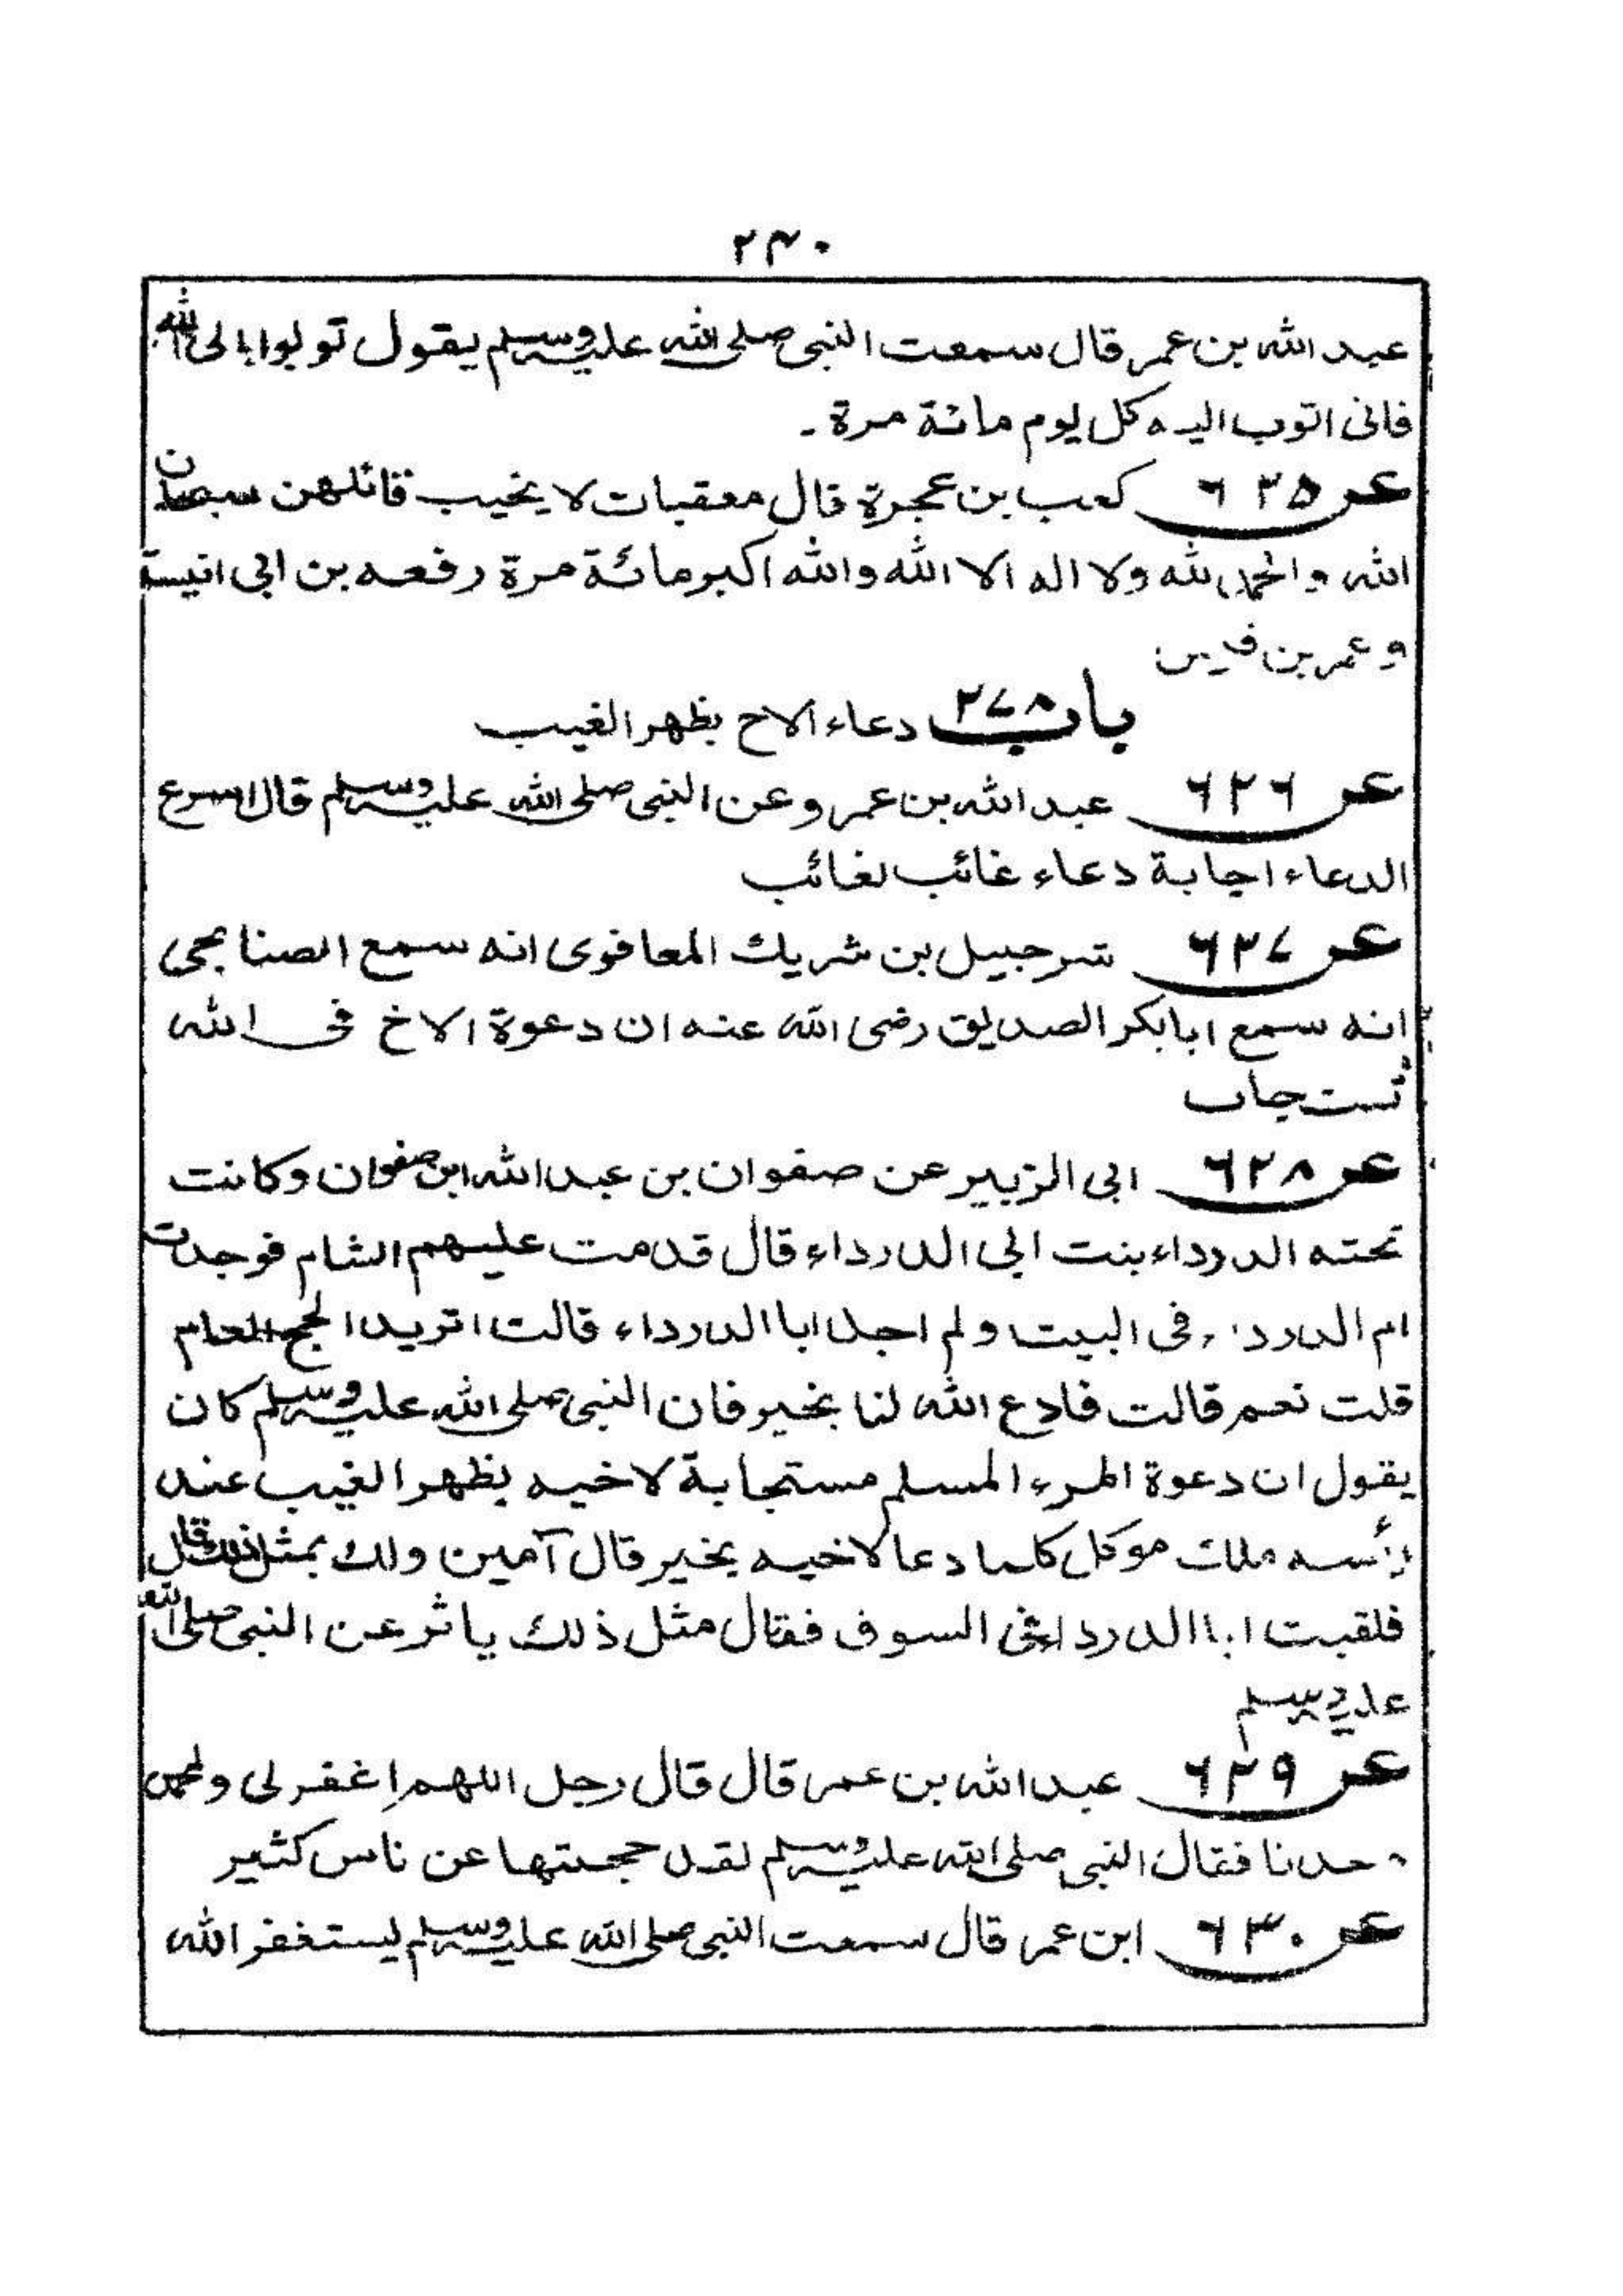 ۲۴۰
عبد الله بن عمر قال سمعت النبى صلى الله عليه وسلم يقول توبوا الى الله
فانى اتوب اليه كل يوم مائة مرة ۔
عــ ۶۲۵ كعب بن عجرة قال معقبات لا يخيب قائلهن سبحان
الله والحمد لله ولا اله الا الله والله اكبر مائة مرة رفعه بن ابى انيسة
وعمر بن قيس
باب ۲۷۸ دعاء الاخ بظهر الغيب
عــ ۶۲۶ عبد الله بن عمرو عن النبى صلى الله عليه وسلم قال اسرع
الدعاء اجابة دعاء غائب لغائب
عــ ۶۲۷ شرجبيل بن شريك المعافوى انه سمع الصنابحى
انه سمع ابا بكر الصديق رضى الله عنه ان دعوة الاخ فى الله
تستجاب
عــ ۶۲۸ ابى الزبير عن صفوان بن عبد الله ابن صفوان وكانت
تحته الدرداء بنت ابى الدرداء قال قدمت عليهم الشام فوجدت
ام الدرداء فى البيت ولم اجد ابا الدرداء قالت اتريد الحج العام
قلت نعم قالت فادع الله لنا بخير فان النبى صلى الله عليه وسلم كان
يقول ان دعوة المرء المسلم مستجابة لاخيه بظهر الغيب عند
رأسه ملك موكل كلما دعا لاخيه بخير قال آمين ولك بمثل ذلك قال
فلقيت ابا الدرداء فى السوق فقال مثل ذلك ياثر عن النبى صلى الله
عليه وسلم
عــ ۶۲۹ عبد الله بن عمر قال قال رجل اللهم اغفر لى ولمحمد
وحدنا فقال النبى صلى الله عليه وسلم لقد حجبتها عن ناس كثير
عــ ۶۳۰ ابن عمر قال سمعت النبى صلى الله عليه وسلم يستغفر الله